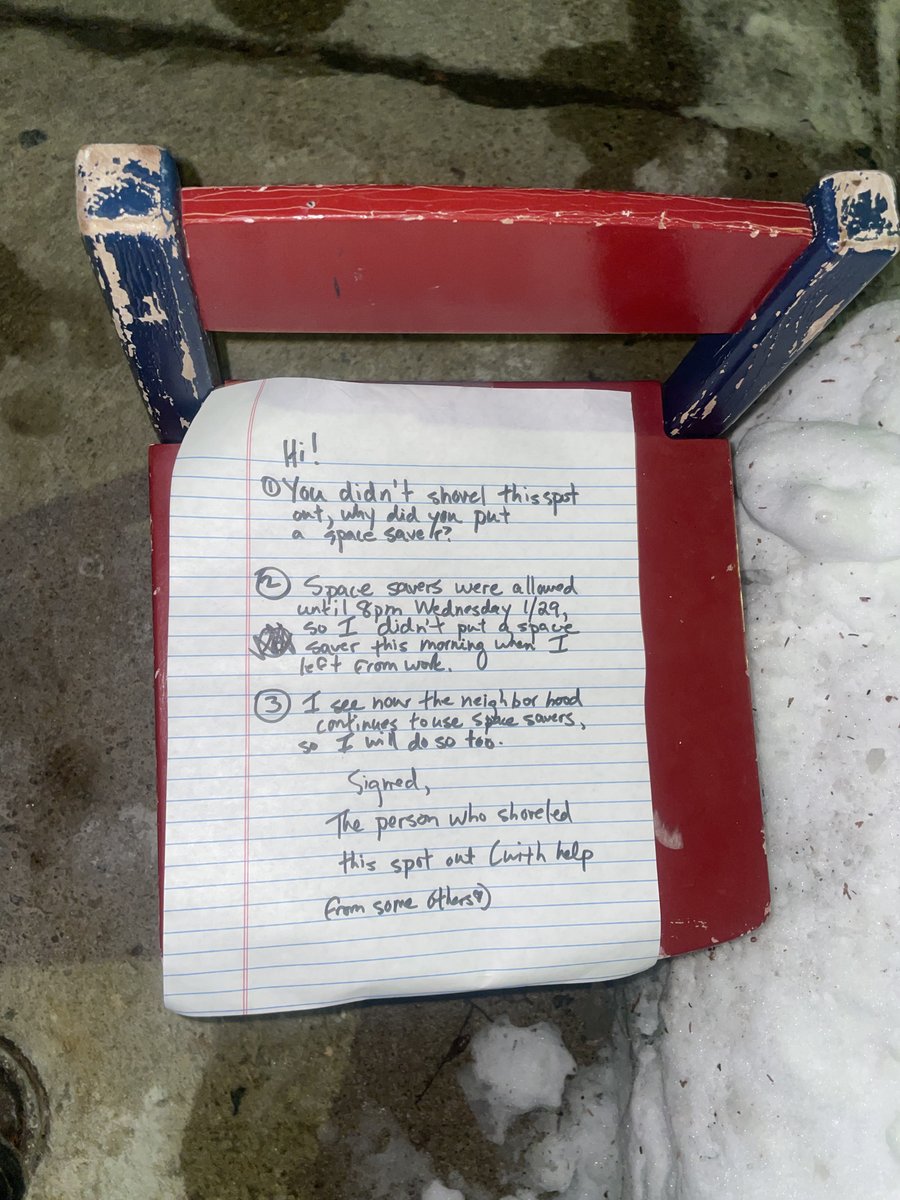 Hi!
① You didn't shovel this spot
out, why did you put
a space saver?
② Space savers were allowed
until 8pm Wednesday 1/29,
so I didn't put a space
saver this morning when I
left from work.
③ I see now the neighborhood
continues to use space savers,
so I will do so too.
Signed,
The person who shoveled
this spot out (with help
from some others)